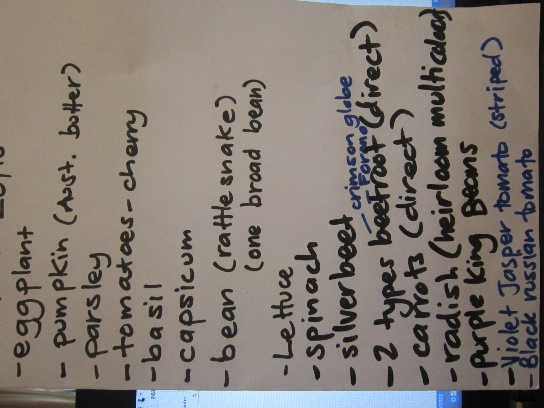 - eggplant
- pumpkin (Aust. butter)
- parsley
- tomatoes - cherry
- basil
- capsicum
- bean (rattlesnake)
(one broad bean)
- Lettuce
- spinach
- silverbeet
- crimson globe
- Formanova
- 2 types beetroot (direct)
- carrots (direct)
- radish (heirloom multicolored)
- purple King Beans
- Violet Jasper tomato (striped)
- Black russian tomato